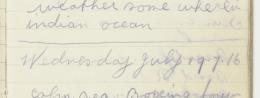 weather some where in
indian ocean
Wednesday July 19.7.16
calm sea. Boxing